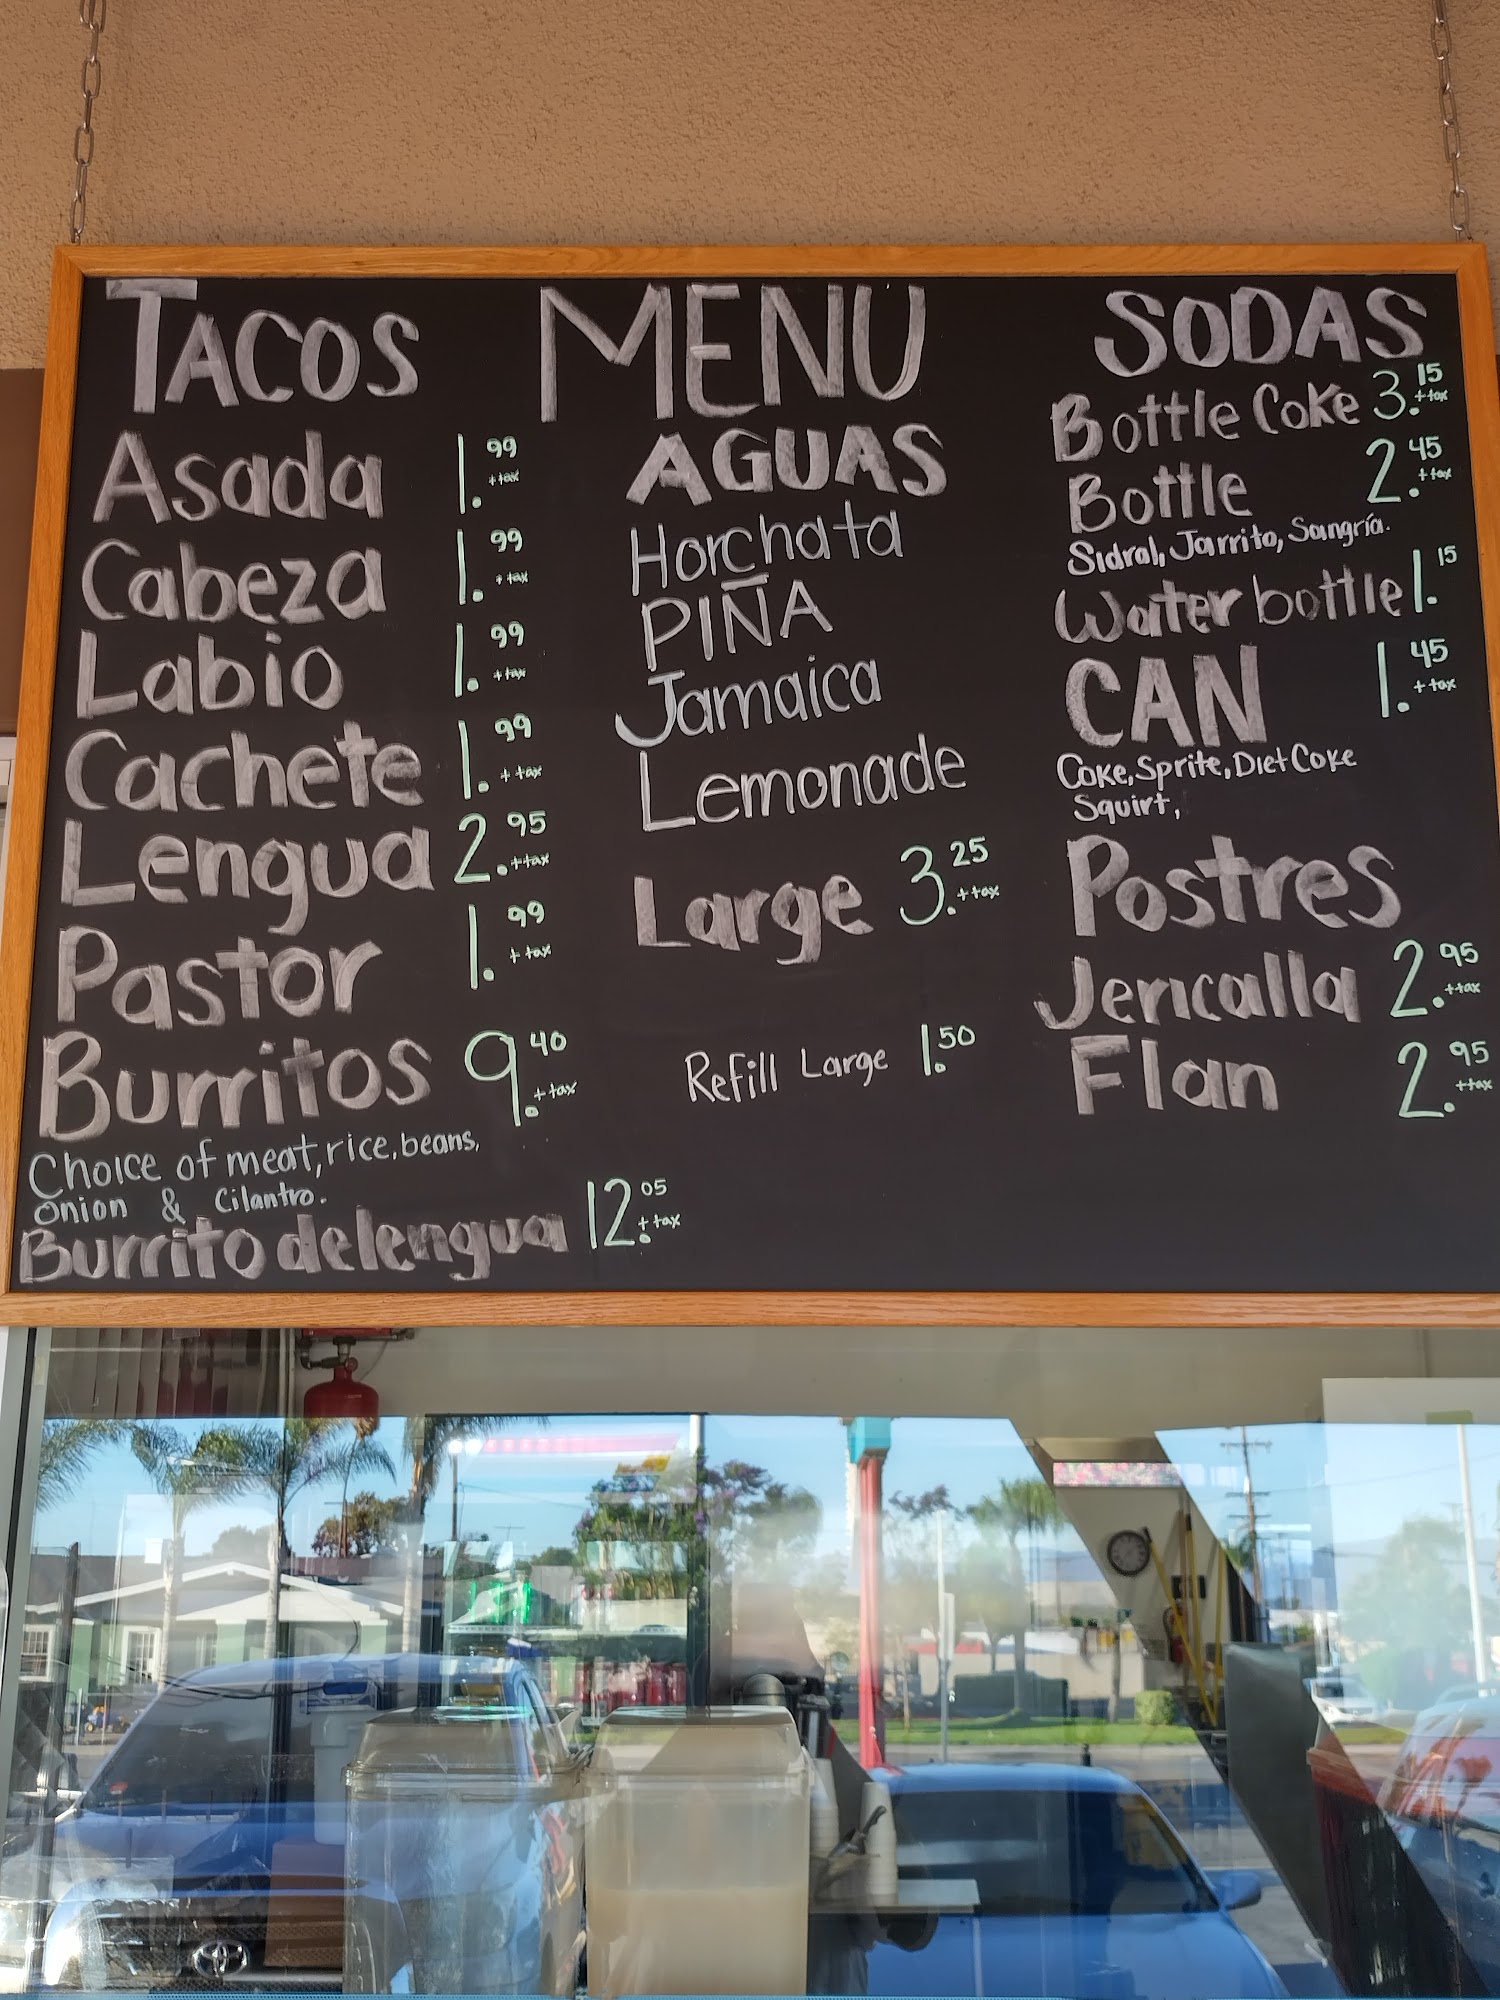 TACOS
Asada 1.99 +tax
Cabeza 1.99 +tax
Labio 1.99 +tax
Cachete 1.99 +tax
Lengua 2.95 +tax
Pastor 1.99 +tax
Burritos 9.40 +tax
Choice of meat, rice, beans,
onion & Cilantro.
Burrito de lengua 12.05 +tax
MENU
AGUAS
Horchata
PIÑA
Jamaica
Lemonade
Large 3.25 +tax
Refill Large 1.50
SODAS
Bottle Coke 3.15 +tax
Bottle 2.45 +tax
Sidral, Jarrito, Sangría.
Water bottle 1.15
CAN 1.45 +tax
Coke, Sprite, Diet Coke
Squirt,
Postres
Jericalla 2.95 +tax
Flan 2.95 +tax